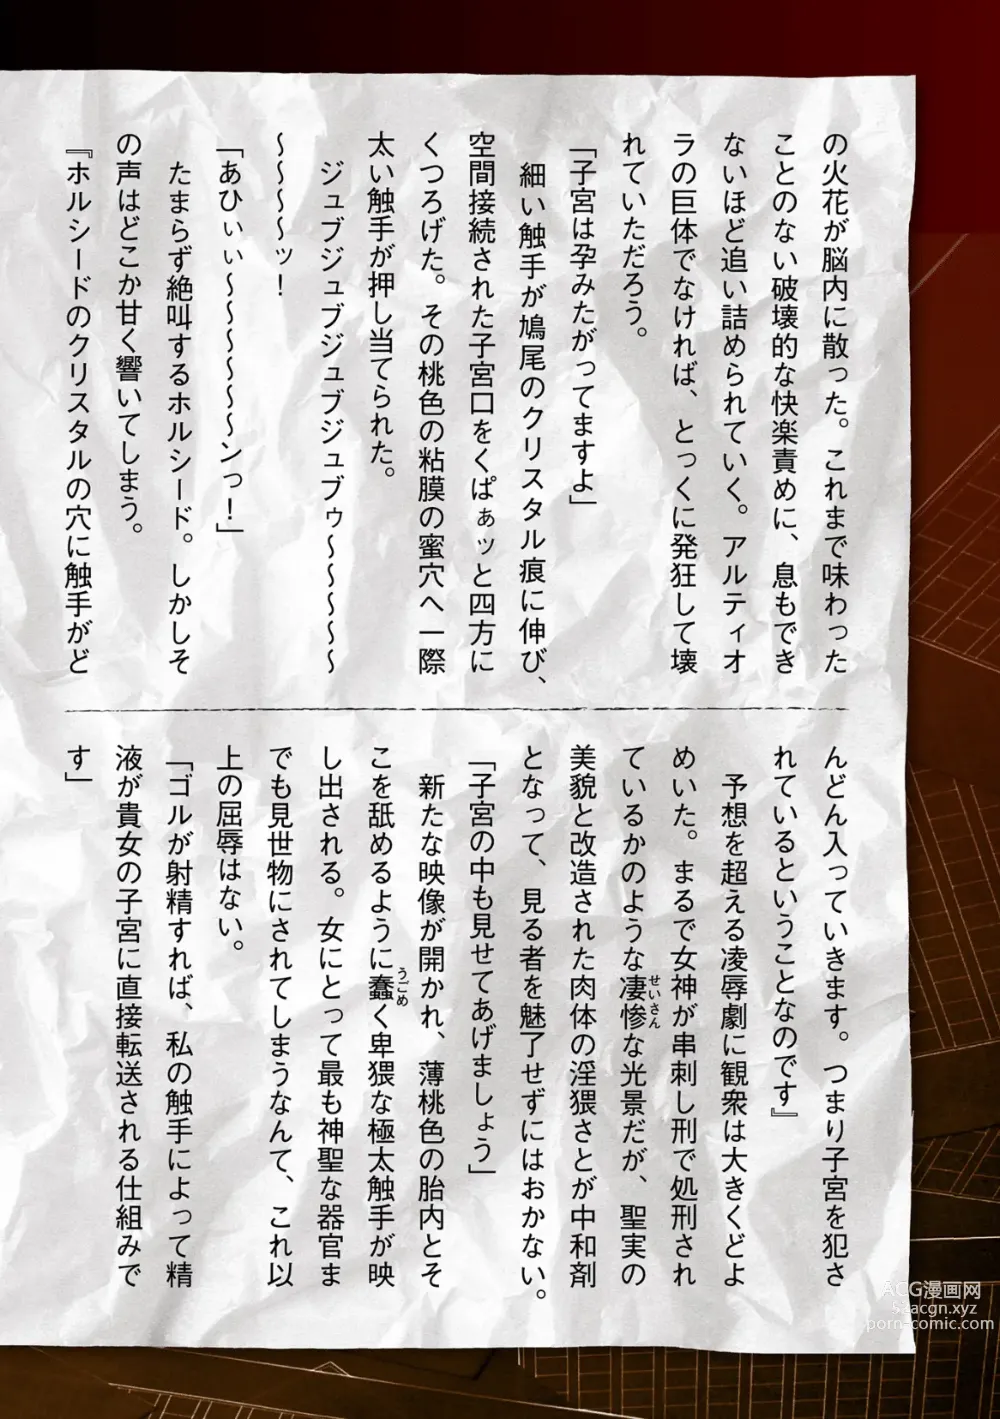 の火花が脳内に散った。これまで味わった
ことのない破壊的な快楽責めに、息もでき
ないほど追い詰められていく。アルティオ
ラの巨体でなければ、とっくに発狂して壊
れていただろう。
「子宮は孕みたがってますよ」
細い触手が鳩尾のクリスタル痕に伸び、
空間接続された子宮口をくぱぁッと四方に
くつろげた。その桃色の粘膜の蜜穴へ一際
太い触手が押し当てられた。
ジュブジュブジュブジュブゥ～～～～～
～～～～ッ！
「あひぃぃ～～～～～～～ンっ！」
たまらず絶叫するホルシード。しかしそ
の声はどこか甘く響いてしまう。
『ホルシードのクリスタルの穴に触手がど
んどん入っていきます。つまり子宮を犯さ
れているということなのです』
予想を超える凌辱劇に観衆は大きくどよ
めいた。まるで女神が串刺し刑で処刑され
ているかのような凄惨な光景だが、聖実の
せいさん
美貌と改造された肉体の淫猥さとが中和剤
となって、見る者を魅了せずにはおかない。
「子宮の中も見せてあげましょう」
新たな映像が開かれ、薄桃色の胎内とそ
こを舐めるように蠢く卑猥な極太触手が映
うごめ
し出される。女にとって最も神聖な器官ま
でも見世物にされてしまうなんて、これ以
上の屈辱はない。
「ゴルが射精すれば、私の触手によって精
液が貴女の子宮に直接転送される仕組みで
す」
ACG漫画网
51acgn.xyz
porn-comic.com